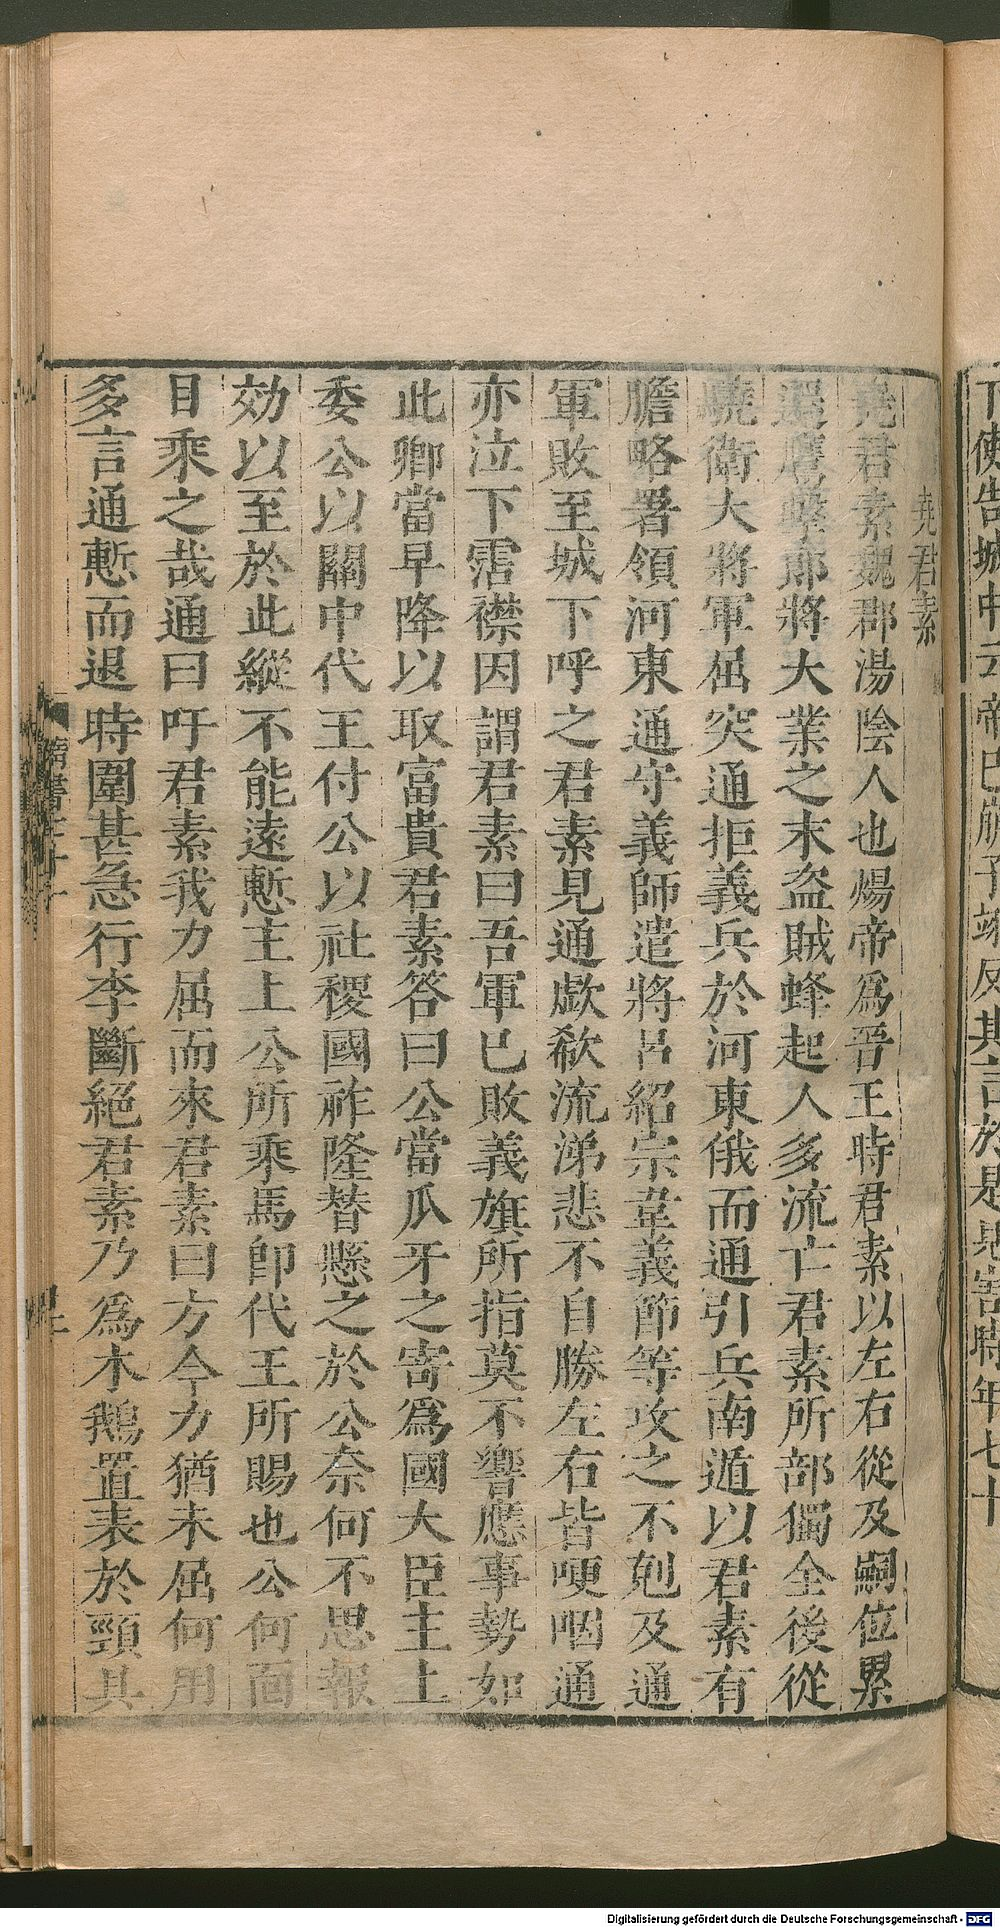 下使告城中云帝已崩子竦反其言於是見害時年七十
堯君素
堯君素魏郡湯陰人也煬帝爲晉王時君素以左右從及嗣位累
遷鷹擊郎將大業之末盜賊蜂起人多流亡君素所部獨全後從
驍衛大將軍屈突通拒義兵於河東俄而通引兵南遁以君素有
膽略署領河東通守義師遣將呂紹宗韋義節等攻之不剋及通
軍敗至城下呼之君素見通歔欷流涕悲不自勝左右皆哽咽通
亦泣下霑襟因謂君素曰吾軍已敗義旗所指莫不響應事勢如
此卿當早降以取富貴君素答曰公當瓜牙之寄爲國大臣主上
委公以關中代王付公以社稷國祚隆替懸之於公奈何不思報
効以至於此縱不能遠慙主上公所乘馬卽代王所賜也公何面
目乘之哉通曰吁君素我力屈而來君素曰方今力猶未屈何用
多言通慙而退時圍甚急行李斷絕君素乃爲木鵝置表於頸具
隋書七十一
Digitalisierung gefördert durch die Deutsche Forschungsgemeinschaft - DFG